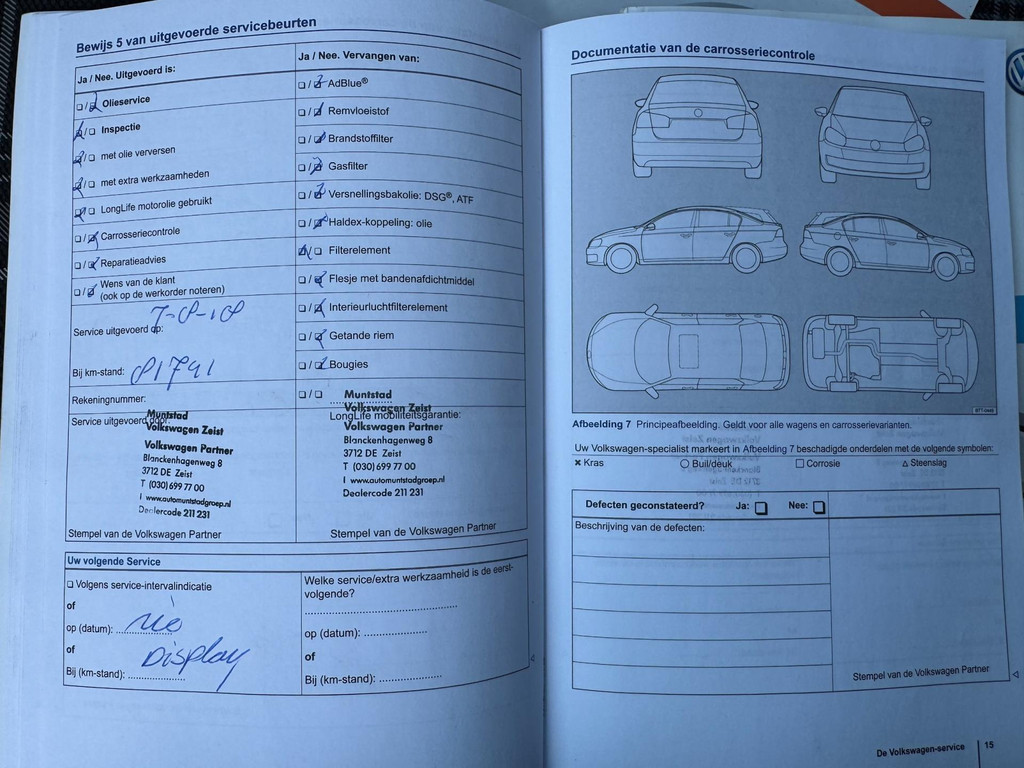 Bewijs 5 van uitgevoerde servicebeurten
Ja / Nee. Uitgevoerd is:
☐/☑ Olieservice
☑/☐ Inspectie
☑/☐ met olie verversen
☑/☐ met extra werkzaamheden
☑/☐ LongLife motorolie gebruikt
☐/☑ Carrosseriecontrole
☐/☑ Reparatieadvies
☐/☑ Wens van de klant
(ook op de werkorder noteren)
Service uitgevoerd op: 7-8-18
Bij km-stand: 81791
Rekeningnummer:
Service uitgevoerd door:
Muntstad
Volkswagen Zeist
Volkswagen Partner
Blanckenhagenweg 8
3712 DE Zeist
T (030) 699 77 00
I www.automuntstadgroep.nl
Dealercode 211 231
Stempel van de Volkswagen Partner
Ja / Nee. Vervangen van:
☐/☑ AdBlue®
☐/☑ Remvloeistof
☐/☑ Brandstoffilter
☐/☑ Gasfilter
☐/☑ Versnellingsbakolie: DSG®, ATF
☐/☑ Haldex-koppeling: olie
☑/☐ Filterelement
☐/☑ Flesje met bandenafdichtmiddel
☐/☑ Interieurluchtfilterelement
☐/☑ Getande riem
☐/☑ Bougies
☐/☐ ....................
LongLife mobiliteitsgarantie:
Muntstad
Volkswagen Zeist
Volkswagen Partner
Blanckenhagenweg 8
3712 DE Zeist
T (030) 699 77 00
I www.automuntstadgroep.nl
Dealercode 211 231
Stempel van de Volkswagen Partner
Uw volgende Service
☐ Volgens service-intervalindicatie
of
op (datum): ....................
of
Display
Bij (km-stand): ....................
Welke service/extra werkzaamheid is de eerst-
volgende?
........................................
op (datum): ....................
of
Bij (km-stand): ....................
Documentatie van de carrosseriecontrole
Afbeelding 7 Principeafbeelding. Geldt voor alle wagens en carrosserievarianten.
Uw Volkswagen-specialist markeert in Afbeelding 7 beschadigde onderdelen met de volgende symbolen:
× Kras ○ Buil/deuk □ Corrosie △ Steenslag
Defecten geconstateerd? Ja: ☐ Nee: ☐
Beschrijving van de defecten:
Stempel van de Volkswagen Partner
De Volkswagen-service | 15